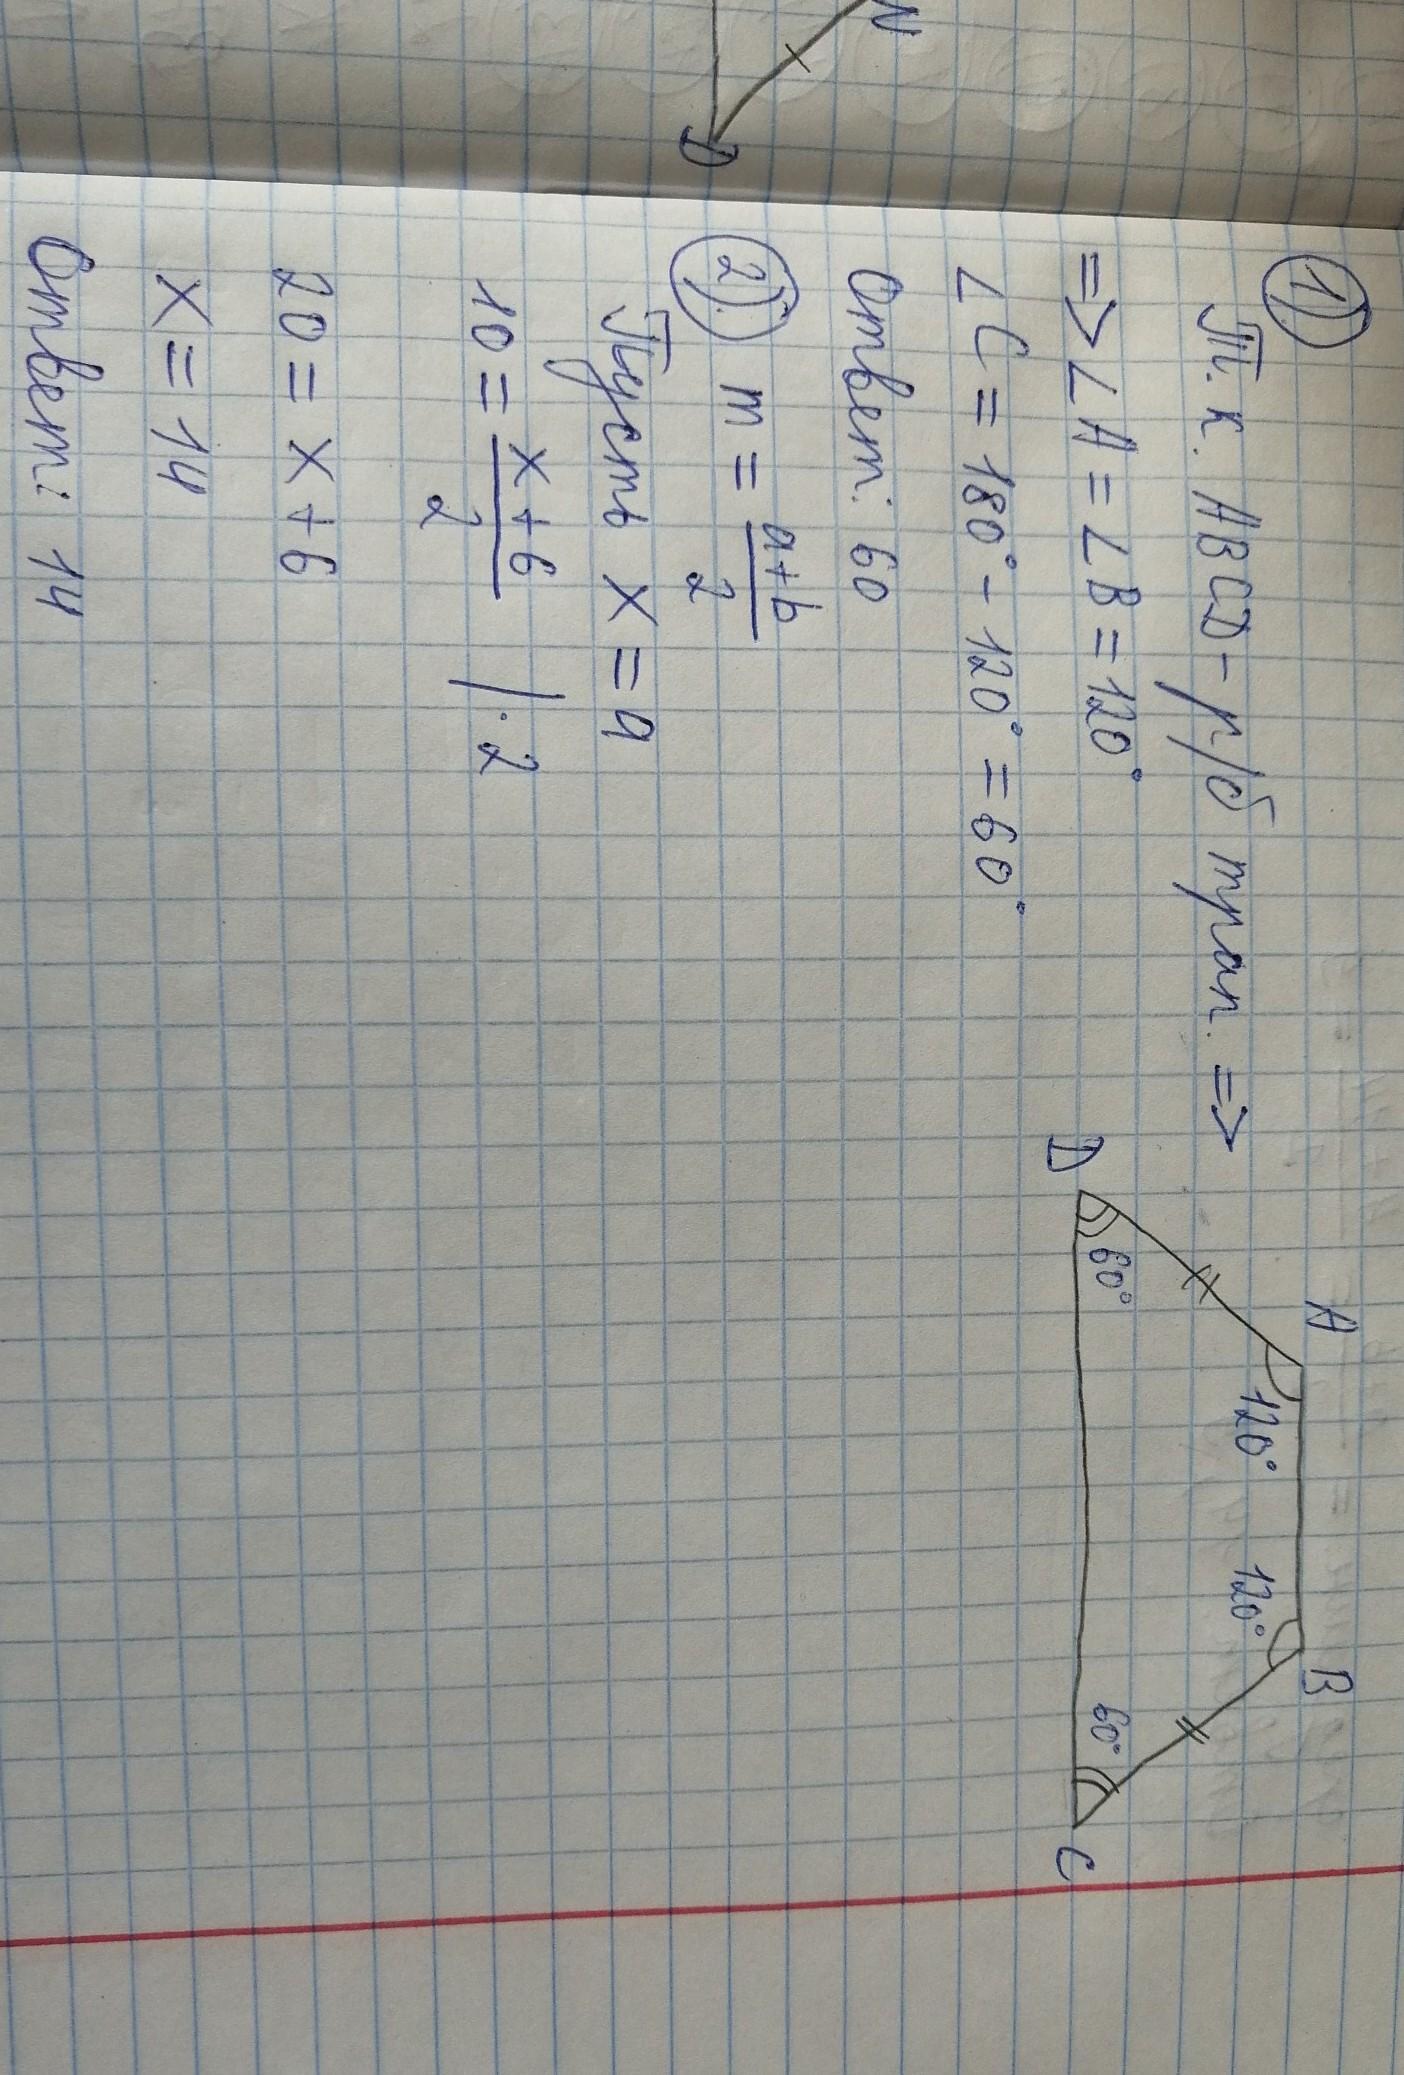 1).
Т. к. ABCD - р/б трап. =>
=> ∠A = ∠B = 120°
∠C = 180° - 120° = 60°
Ответ: 60
A
B
120°
120°
60°
60°
D
C
2). m = a+b/2
Пусть x = a
10 = x+6/2 | · 2
20 = x + 6
x = 14
Ответ: 14
N
D